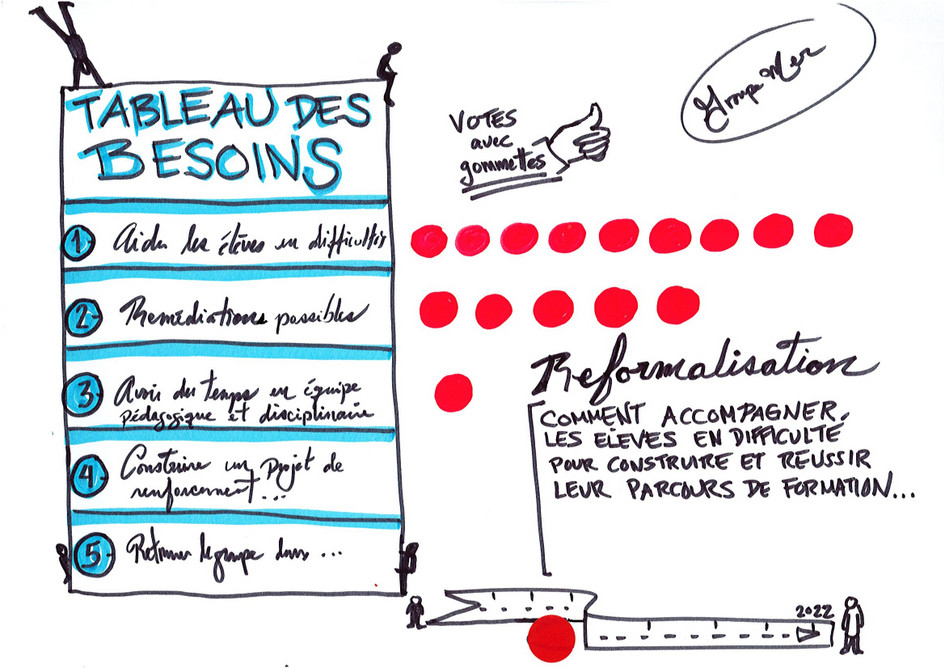 TABLEAU DES
BESOINS
1 Aider les élèves en difficultés
2 Remédiations possibles
3 Avoir du temps en équipe
pédagogique et disciplinaire
4 Construire un projet de
renforcement...
5 le groupe dans ...
VOTES
avec
gommettes
Groupe Mer
Reformalisation
COMMENT ACCOMPAGNER
LES ELEVES EN DIFFICULTÉ
POUR CONSTRUIRE ET REUSSIR
LEUR PARCOURS DE FORMATION...
2022